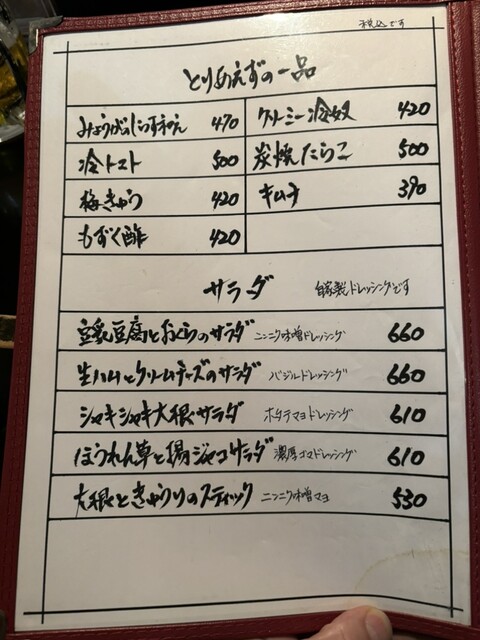 税込です
とりあえずの一品
みょうがのしらす和え 470
クリーミー冷奴 420
冷トマト 500
炭焼たらこ 500
梅きゅう 420
キムチ 390
もずく酢 420
サラダ 自家製ドレッシングです
豆乳豆腐とおくらのサラダ ニンニク味噌ドレッシング 660
生ハムとクリームチーズのサラダ バジルドレッシング 660
シャキシャキ大根サラダ ホタテマヨドレッシング 610
ほうれん草と揚ジャコサラダ 濃厚ゴマドレッシング 610
大根ときゅうりのスティック ニンニク味噌マヨ 530